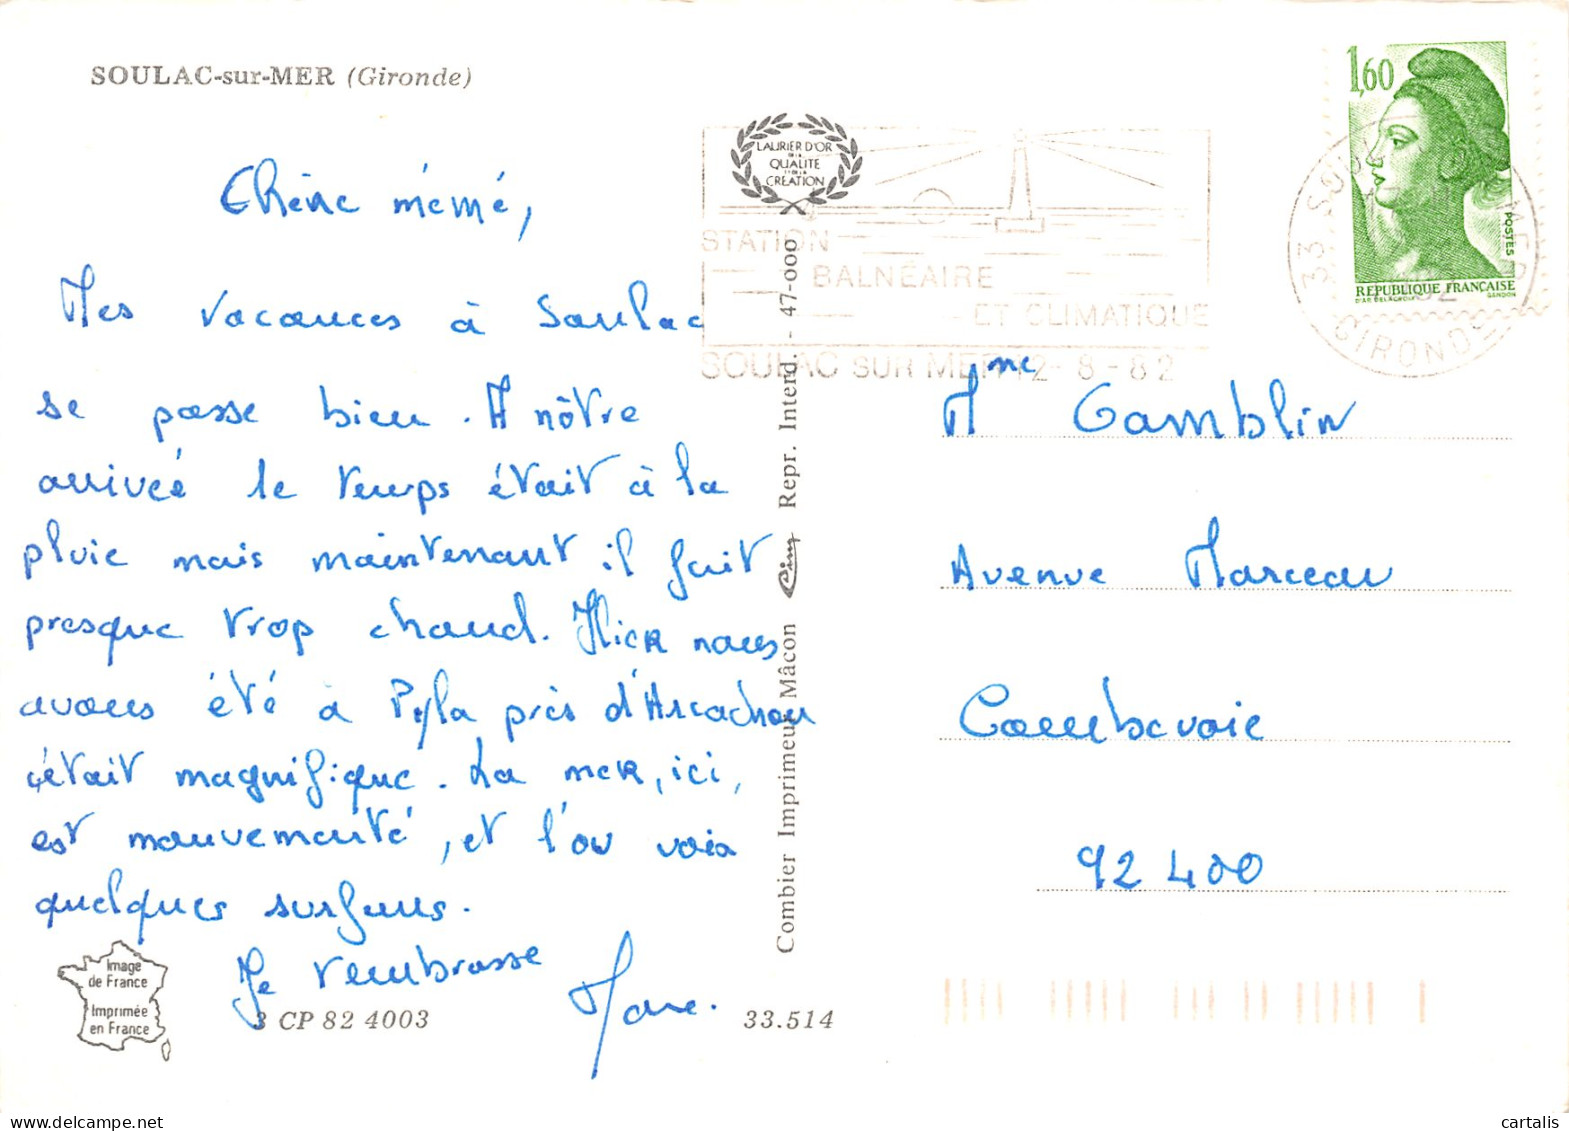 SOULAC-sur-MER (Gironde)
Chère mémé,
Mes vacances à Soulac
se passe bien. A nôtre
arrivée le temps était à la
pluie mais maintenant il fait
presque trop chaud. Hier nous
avons été à Pyla près d'Arcachon
c'était magnifique. La mer, ici,
est mouvementé, et l'on vois
quelques surfeurs.
Je t'embrasse
Marc.
Image
de France
Imprimée
en France
3 CP 82 4003
33.514
Combier Imprimeur Mâcon Cim Repr. Interd. - 47-000
LAURIER D'OR
DE LA
QUALITE
ET DE LA
CREATION
STATION
BALNÉAIRE
ET CLIMATIQUE
SOULAC SUR MER 12-8-82
1,60
POSTES
REPUBLIQUE FRANÇAISE
D'AP. DELACROIX GANDON
GIRONDE
Mme Gamblin
Avenue Marceau
Courbevoie
92400
cartalis